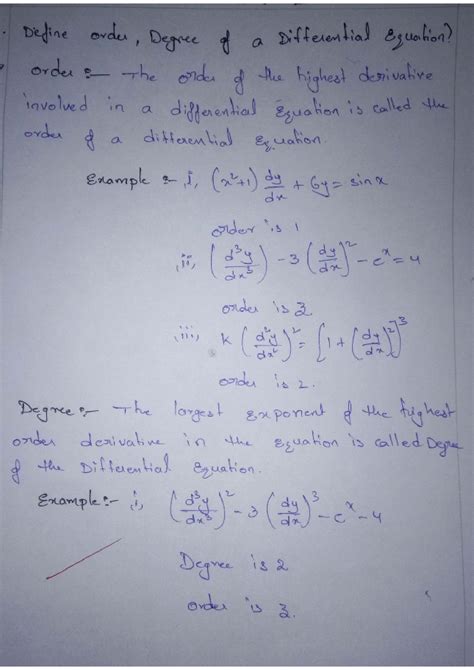 Define order, Degree of a Differential Equation?
order :- The order of the highest derivative
involved in a differential Equation is called the
order of a differential Equation.
Example :- i, (x²+1) dy/dx + 6y = sin x
order is 1
ii, (d³y/dx³) - 3 (dy/dx)² - eˣ = 4
order is 3
iii, k (d²y/dx²)² = [1 + (dy/dx)²]³
order is 2.
Degree :- The largest exponent of the highest
order derivative in the equation is called Degree
of the Differential Equation.
Example :- i, (d³y/dx³)² - 3 (dy/dx)³ - eˣ - 4
Degree is 2
order is 3.